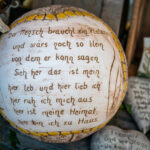 Der Mensch braucht ein Plätzchen
und wärs noch so klein
von dem er kann sagen
Seh her das ist mein
hier leb und hier lieb ich
hier ruh ich mich aus
hier ist meine Heimat
hier bin ich zu Haus